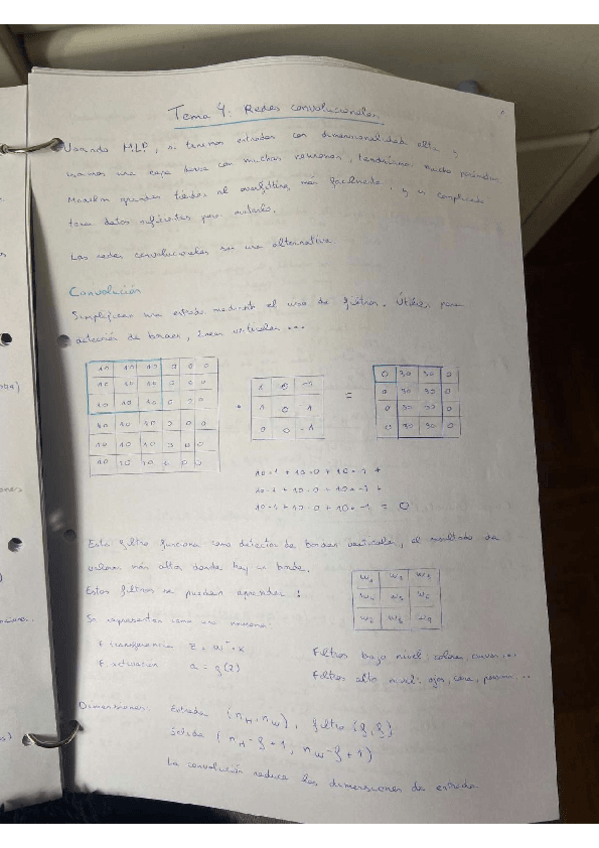 Tema 4: Redes convolucionales
Usando MLP, si tenemos entradas con dimensionalidad alta y
usamos una capa densa con muchas neuronas, tendríamos mucho parámetros
grandes tienden al overfitting más facilmente, y es complicado
tener datos suficientes para
Las redes convolucionales son una alternativa
Convolución
Simplifican una entrada mediante el uso de filtros. Útiles para
detección de bordes, líneas verticales ...
10 10 10 0 0 0
10 10 10 0 0 0
10 10 10 0 0 0
10 10 10 0 0 0
10 10 10 0 0 0
10 10 10 0 0 0
*
1 0 -1
1 0
0 -1
=
0 30 30 0
0 30 30 0
0 30 30 0
0 30 30 0
10·1 + 10·0 + 10·-1 +
10·1 + 10·0 + 10·-1 +
10·1 + 10·0 + 10·-1 = 0
Este filtro funciona como detector de bordes verticales, el resultado da
valores más altos donde hay un borde.
Estos filtros se pueden aprender:
w1 w2 w3
w4 w5 w6
w7 w8 w9
Se representan como una neurona:
F. transferencia z = wᵀ·x
F. activation a = g(z)
Filtros bajo nivel: colores, curvas, ...
Filtros alto nivel: ojos, cara, ...
Dimensiones: Entrada (nH, nW), filtro (f, f)
Salida (nH - f + 1, nW - f + 1)
La convolución reduce las dimensiones de entrada